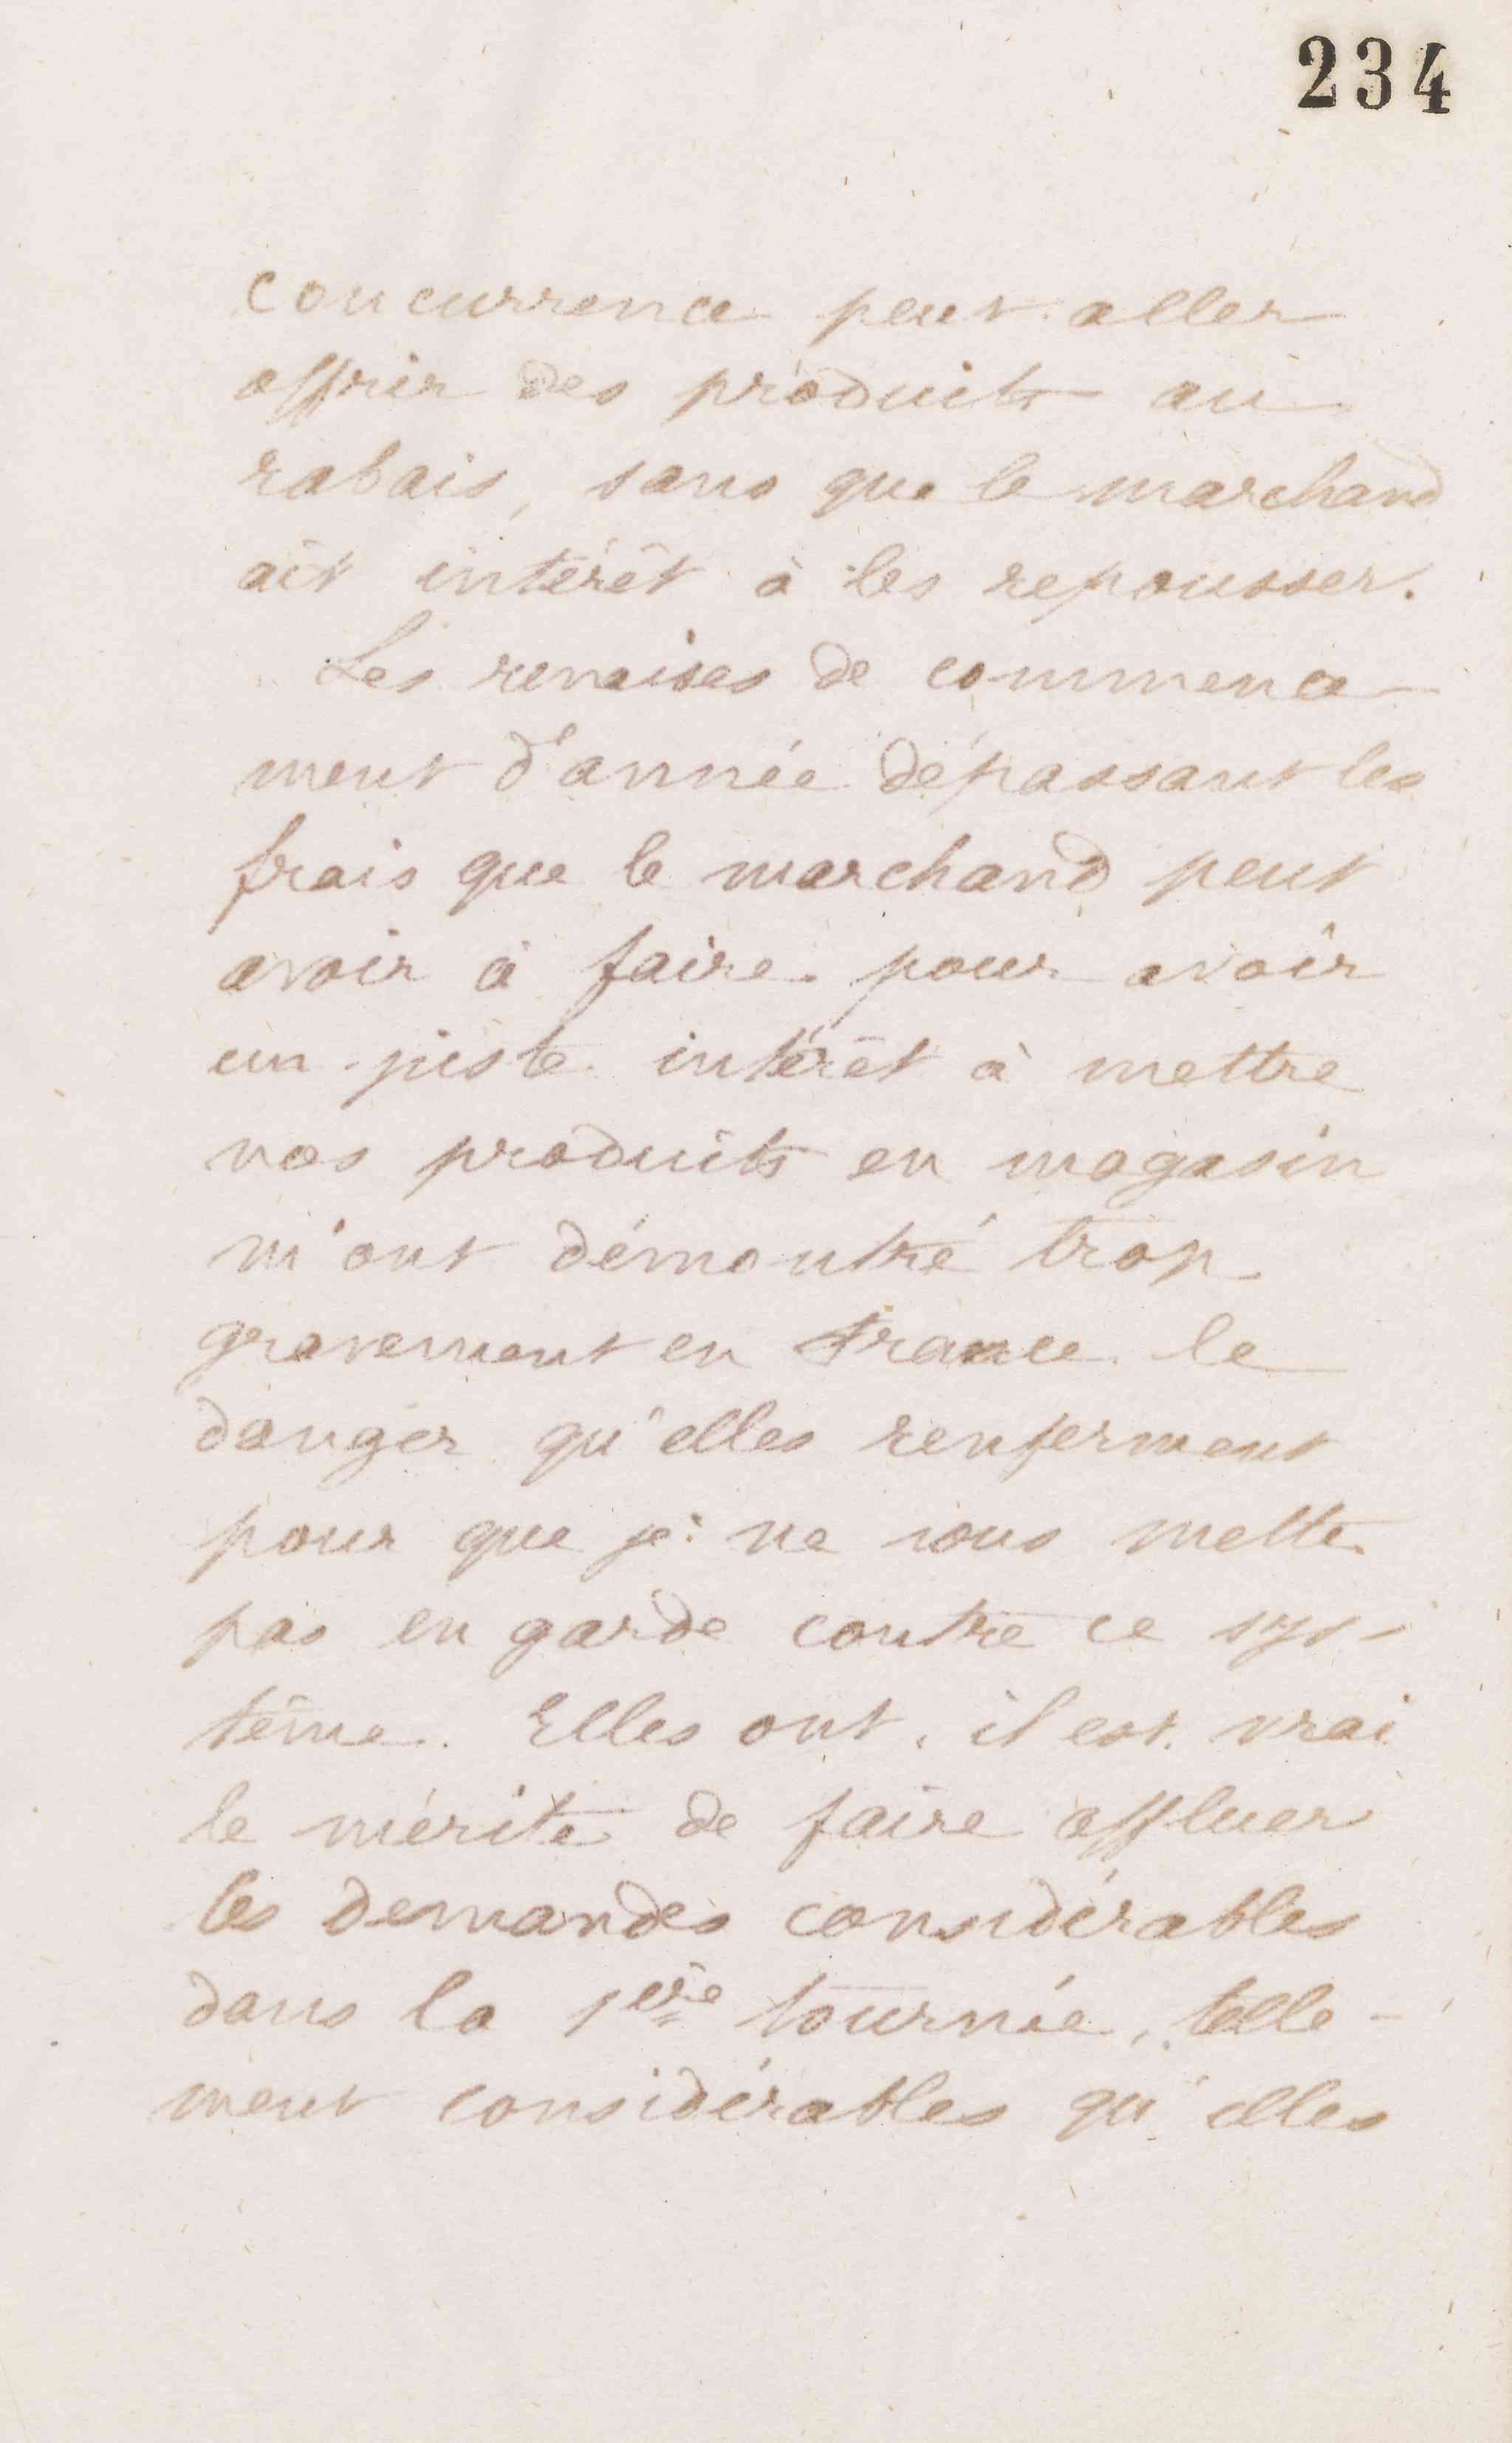 234
concurrence peut aller
offrir des produits au
rabais, sans que le marchand
ait intérêt à les repousser.
Les remises de commence-
ment d'année dépassant les
frais que le marchand peut
avoir à faire pour avoir
un juste intérêt à mettre
nos produits en magasin
m'ont démontré trop
gravement en France le
danger qu'elles renferment
pour que je ne vous mette
pas en garde contre ce sys-
tême. Elles ont, il est vrai
le mérite de faire affluer
les demandes considérables
dans la 1ère tournée, telle-
ment considérables qu'elles